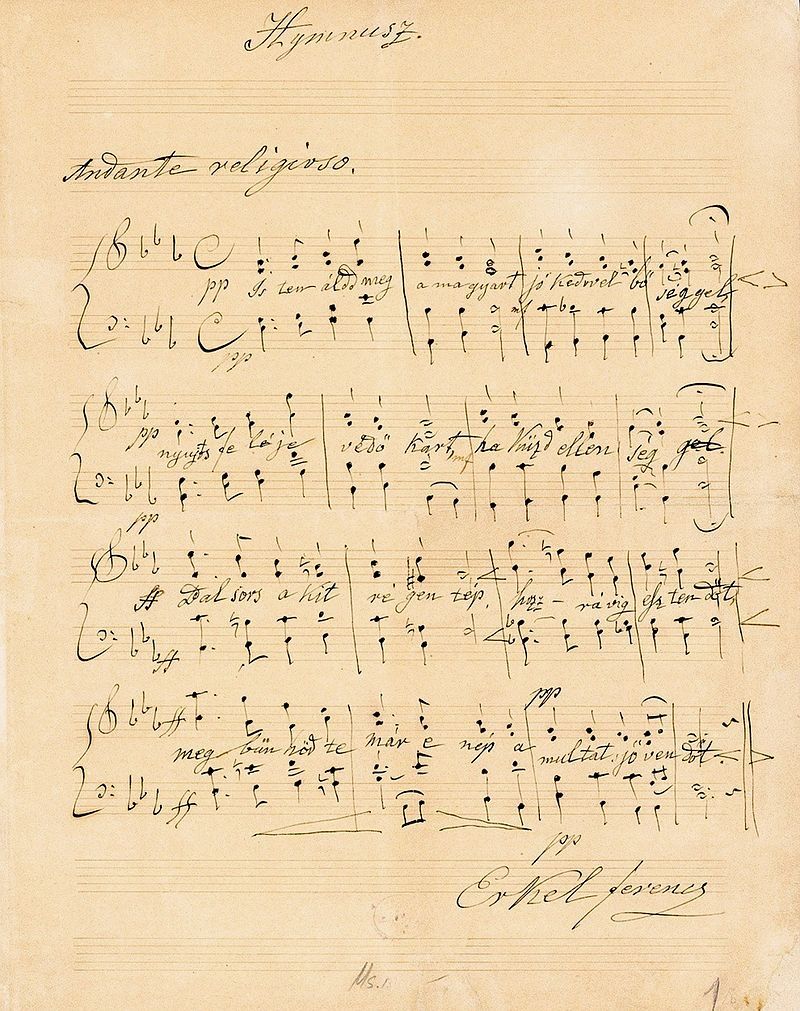 Hymnusz.
Andante religioso.
pp Is ten áldd meg a magyart jó kedvvel bő séggel,
mf
pp
pp nyujts fe lé je védő kart, ha küzd ellen ség gel.
mf
pp
ff Bal sors a kit ré gen tép, hoz - rá víg esz ten dőt,
ff
pp
ff meg bűn hőd te már e nép a multat, jöven dőt.
ff
pp
Erkel Ferencz
Ms.
1